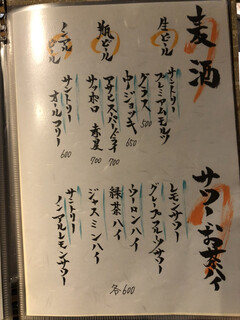 麦酒
生ビール
サントリー
プレミアムモルツ
グラス 500
中ジョッキ 650
瓶ビール
アサヒスーパードライ 700
サッポロ 赤星 700
ノンアルビール
サントリー
オールフリー 600
サワー・お茶ハイ
レモンサワー
グレープフルーツサワー
ウーロンハイ
緑茶ハイ
ジャスミンハイ
サントリー
ノンアルレモンサワー
各600